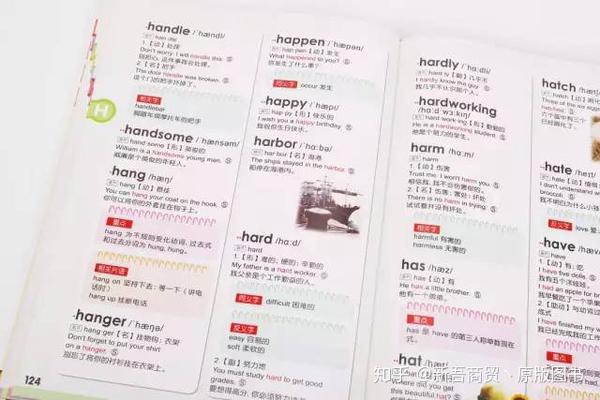 handle /ˈhændl/
han dle
1.【动】处理
Don't worry. I will handle this. ⑤
别担心，这件事我会处理。
2.【名】把手
The door handle was broken. ⑤
这个门的把手坏掉了。
相关字
handlebar
脚踏车或摩托车的把手
H
handsome /ˈhænsəm/
hand some【形】英俊的
William is a handsome young man. ⑤
威廉是个英俊的年轻人。
hang /hæŋ/
hang【动】悬挂
You can hang your coat on the hook. ⑤
你可以将你的外套挂在钩子上。
重点
hang 为不规则变化动词，过去式
和过去分词为 hung, hung。
相关片语
hang on 坚持下去；等一下（讲电
话时）
hang up 挂断电话
hanger /ˈhæŋə/
hang er【名】挂物构；衣架
Don't forget to put your shirt
on a hanger. ⑤
别忘了将你的衬衫挂在衣架上。
124
happen /ˈhæpən/
hap pen【动】发生
What happened to you? ⑤
你发生了什么事？
同义字 occur 发生
happy /ˈhæpɪ/
hap py【形】快乐的
I wish you a happy birthday. ⑤
我祝你生日快乐。
harbor /ˈhɑːbə/
har bor【名】海港
The ships stayed in the harbor. ⑤
船停在海港内。
hard /hɑːd/
hard
1.【形】难的；硬的；辛勤的
My father is a hard worker. ⑤
我父亲是个工作勤奋的人。
同义字 difficult 困难的
反义字
easy 容易的
soft 柔软的
2.【副】努力地
You must study hard to get good
grades. ⑤
hardly /ˈhɑːdli/
hard ly【副】几乎不
I hardly know this guy. ⑤
我几乎不认识那个人。
hardworking
/ˈhɑːdˈwɜːkɪŋ/
hard work ing【形】勤勉的
He is a hardworking student. ⑤
他是个努力的学生。
harm /hɑːm/
harm
1.【动】伤害
Trust me. I won't harm you. ⑤
相信我，我不会伤害你的。
2.【名】伤害；害处；坏处
There is no harm in trying. ⑤
试试看并没有坏处。
相关字
harmful 有害的
harmless 无害的
has /hæz/
has
He has a little brother. ⑤
他有一个弟弟。
重点
has 是 have 的第三人称单数现在
式。
hat /hæt/
hat
Where did you get
hatch
hatch【动】
Three of the six
hatched.
六个蛋中有三个
已经孵化了。
hate /heɪt/
hate【动】
I don't understand why
broccoli.
反义字 love 爱
have /hæv/
have
1.【动】有；吃
I have five dolls. ⑤
我有五个洋娃娃。
I had an apple for
我早餐吃了一个苹果
I have finished my
我已经完成我的工作
知乎 @新吾商贸、原版图书